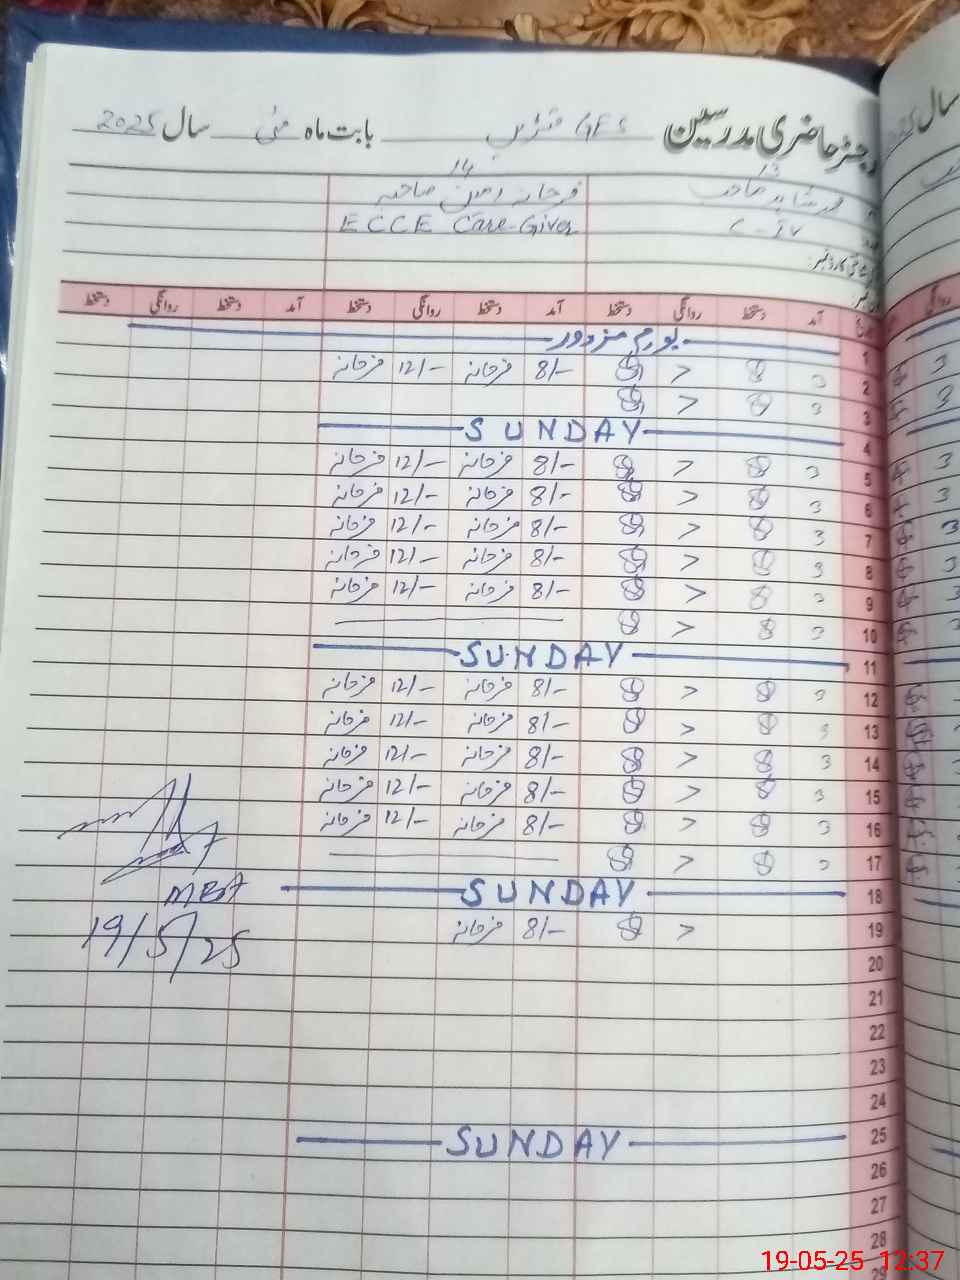 رجسٹر حاضری مدرسین GES بابت ماہ مئی سال 2025 سال
13 14
محمد شاہد صاحب فرحانہ امین صاحبہ
C-IV ECCE Care-Giver
آمد دستخط روانگی دستخط آمد دستخط روانگی دستخط آمد دستخط روانگی دستخط روانگی
1 یوم مزدور
2 > 8/- فرحانہ 12/- فرحانہ
3 >
4 SUNDAY
5 > 8/- فرحانہ 12/- فرحانہ
6 > 8/- فرحانہ 12/- فرحانہ
7 > 8/- فرحانہ 12/- فرحانہ
8 > 8/- فرحانہ 12/- فرحانہ
9 > 8/- فرحانہ 12/- فرحانہ
10 >
11 SUNDAY
12 > 8/- فرحانہ 12/- فرحانہ
13 > 8/- فرحانہ 12/- فرحانہ
14 > 8/- فرحانہ 12/- فرحانہ
15 > 8/- فرحانہ 12/- فرحانہ
16 > 8/- فرحانہ 12/- فرحانہ
17 >
18 SUNDAY
MEA
19 > 8/- فرحانہ
19/5/25
20
21
22
23
24
25 SUNDAY
26
27
28
29
19-05-25 12:37